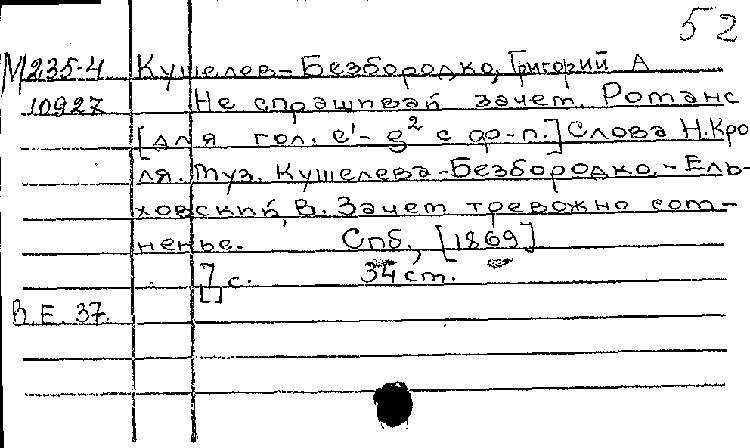 52
М235-4 Кушелев-Безбородко, Григорий А
10927 Не спрашивай зачем. Романс
[для гол. e'-g² с ф-п.] Слова Н. Кро
ля. Муз. Кушелева-Безбородко. - Ель-
ховский, В. Зачем тревожно сом-
ненье. Спб., [1869]
[7] с. 34 ст.
В. Е. 37.